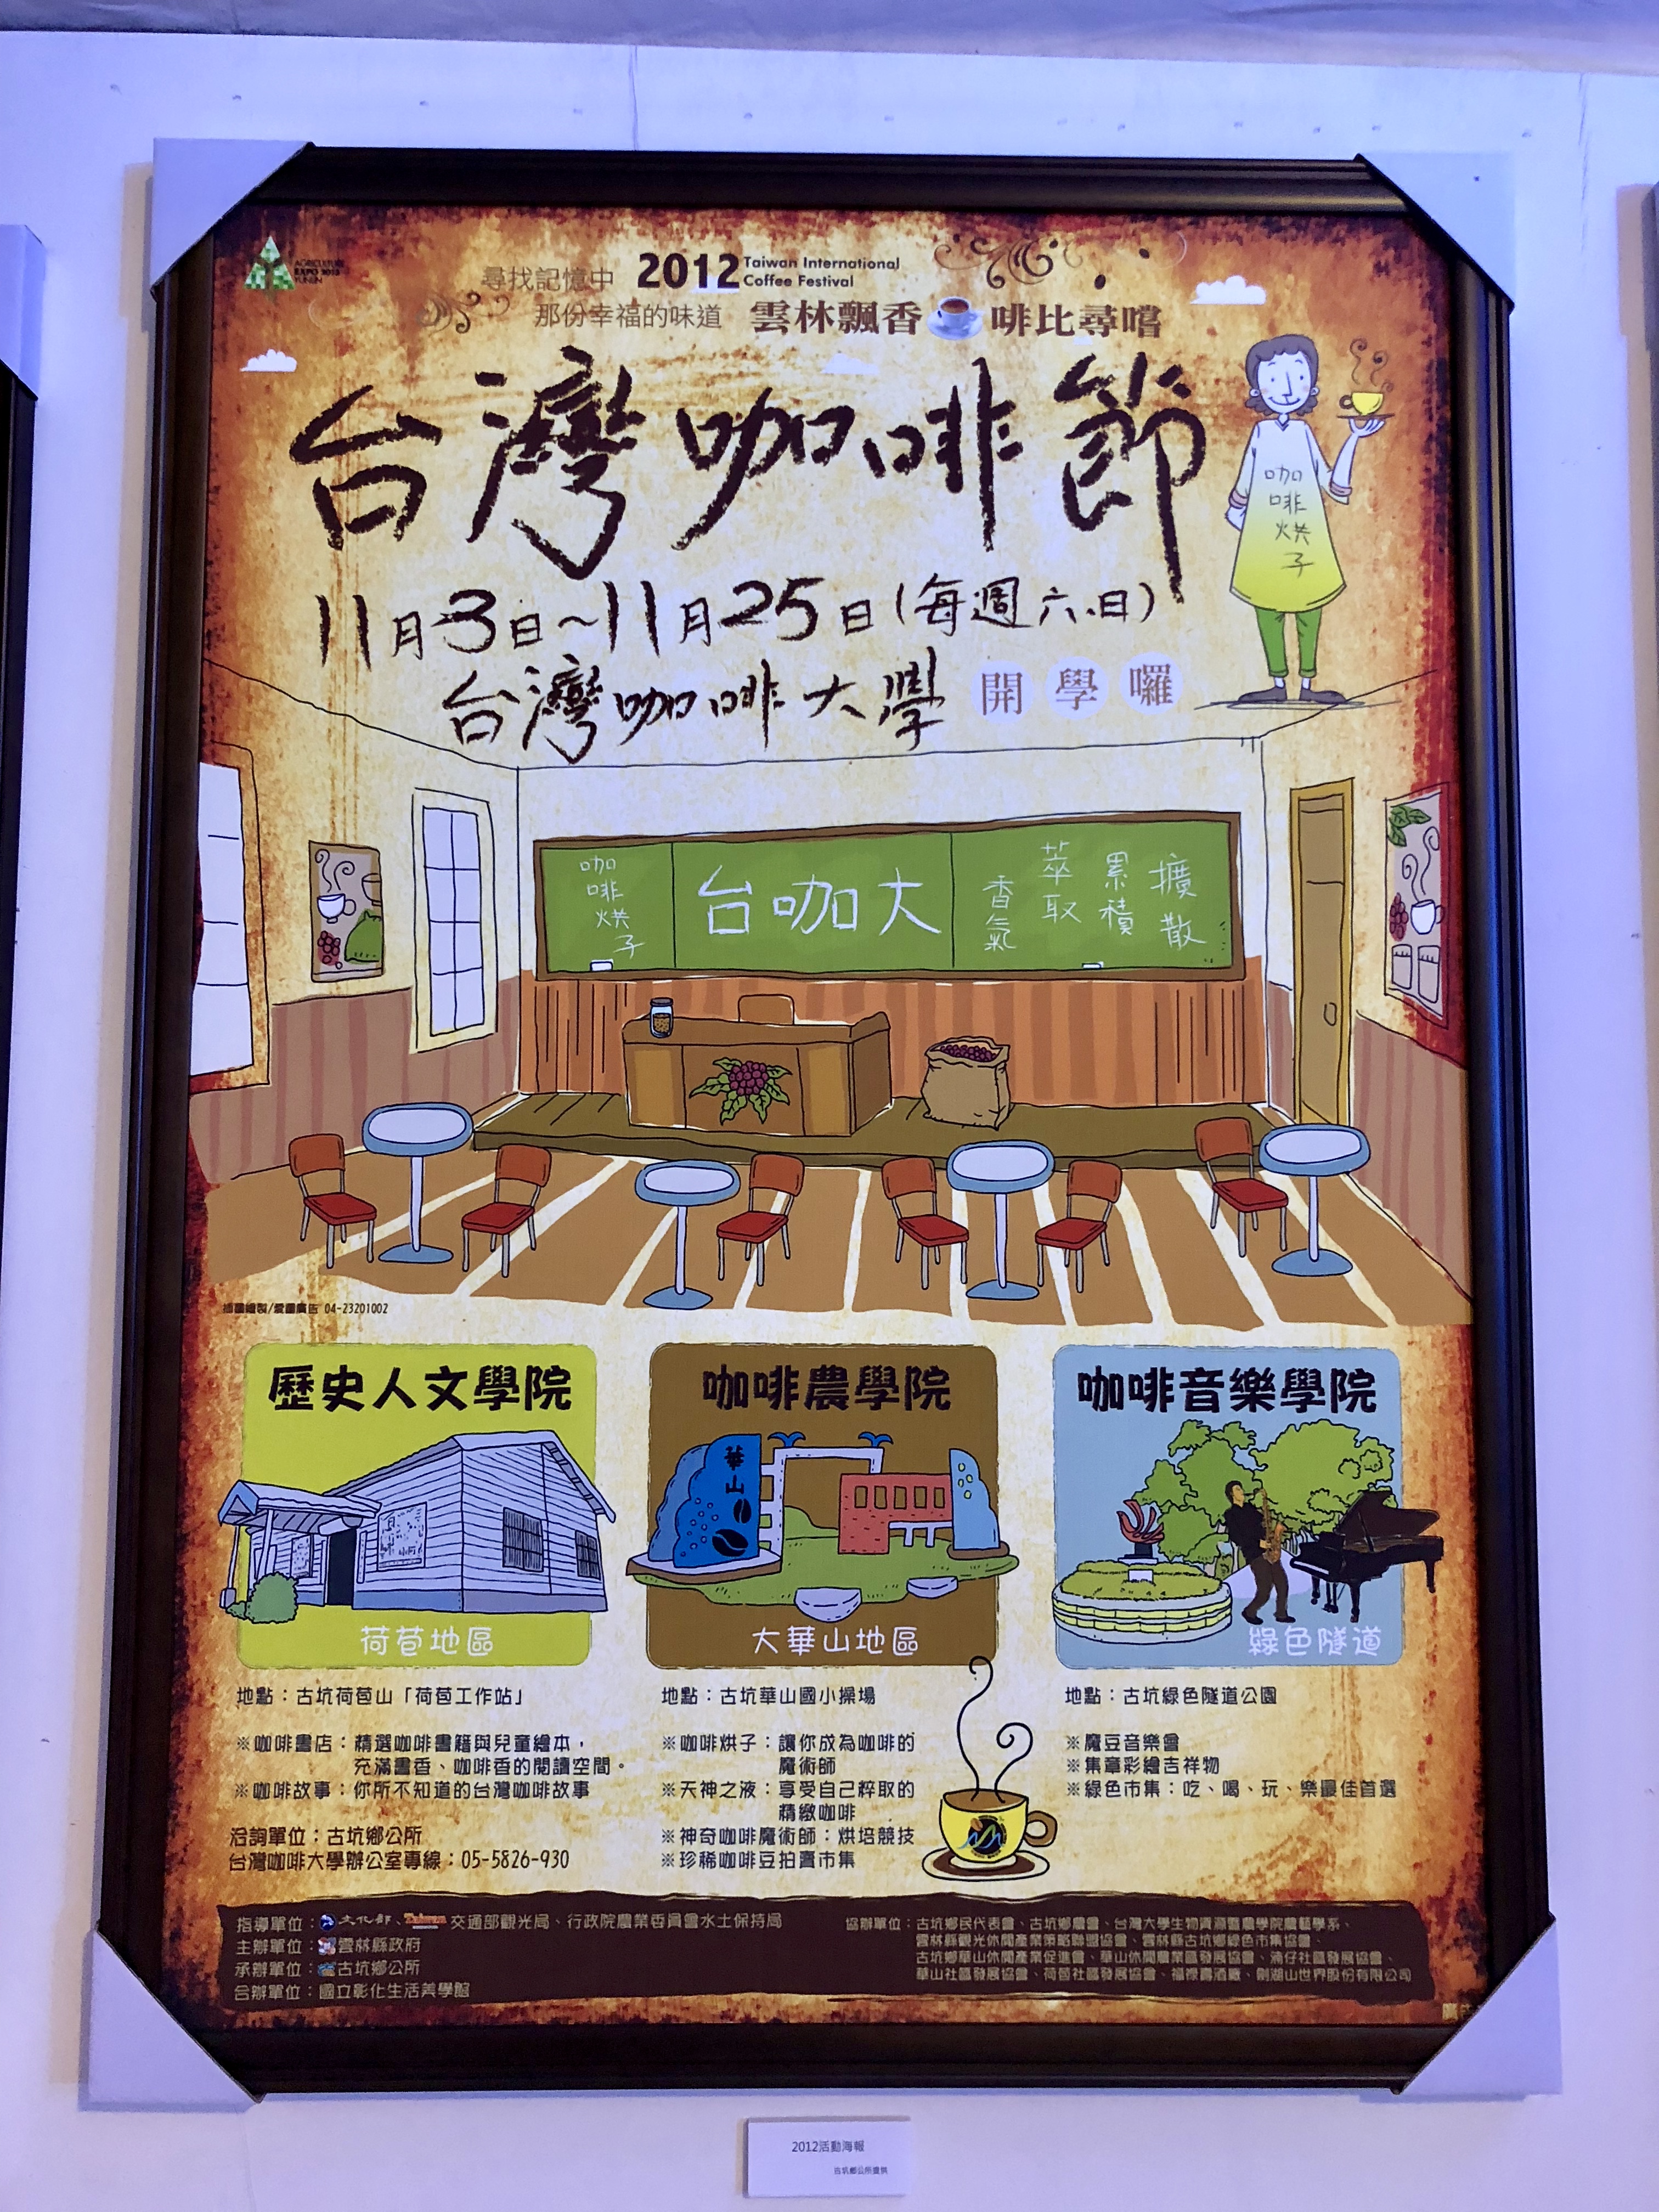 AGRICULTURE
EXPO 2013
YUNLIN
尋找記憶中
2012 Taiwan International
Coffee Festival
那份幸福的味道
雲林飄香 啡比尋嚐
台灣咖啡節
咖
啡
烘
子
11月3日~11月25日(每週六、日)
台灣咖啡大學 開學囉
咖
啡
烘
子
台咖大
香氣
萃取
累積
擴散
插圖繪製/愛圖廣告 04-23201002
歷史人文學院
荷苞地區
地點：古坑荷苞山「荷苞工作站」
※咖啡書店：精選咖啡書籍與兒童繪本，
充滿書香、咖啡香的閱讀空間。
※咖啡故事：你所不知道的台灣咖啡故事
洽詢單位：古坑鄉公所
台灣咖啡大學辦公室專線：05-5826-930
咖啡農學院
華山
大華山地區
地點：古坑華山國小操場
※咖啡烘子：讓你成為咖啡的
魔術師
※天神之液：享受自己粹取的
精緻咖啡
※神奇咖啡魔術師：烘培競技
※珍稀咖啡豆拍賣市集
咖啡音樂學院
綠色隧道
地點：古坑綠色隧道公園
※魔豆音樂會
※集章彩繪吉祥物
※綠色市集：吃、喝、玩、樂最佳首選
指導單位：文化部、Taiwan 交通部觀光局、行政院農業委員會水土保持局
主辦單位：雲林縣政府
承辦單位：古坑鄉公所
合辦單位：國立彰化生活美學館
協辦單位：古坑鄉民代表會、古坑鄉農會、台灣大學生物資源暨農學院農藝學系、
雲林縣觀光休閒產業策略聯盟協會、雲林縣古坑鄉綠色市集協會、
古坑鄉華山休閒產業促進會、華山休閒農業區發展協會、湳仔社區發展協會、
華山社區發展協會、荷苞社區發展協會、福祿壽酒廠、劍湖山世界股份有限公司
2012活動海報
古坑鄉公所提供